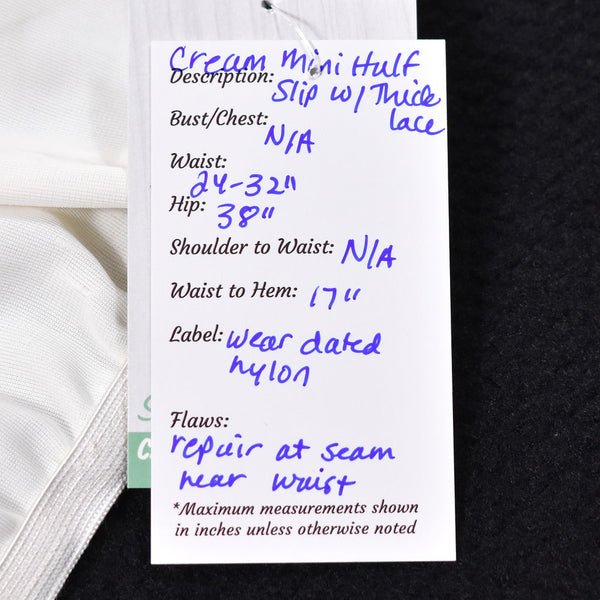 Cream Mini Half
Description: Slip w/ Thick
lace
Bust/Chest:
N/A
Waist:
24-32"
Hip: 38"
Shoulder to Waist: N/A
Waist to Hem: 17"
Label: wear dated
nylon
Flaws:
repair at seam
near waist
*Maximum measurements shown
in inches unless otherwise noted